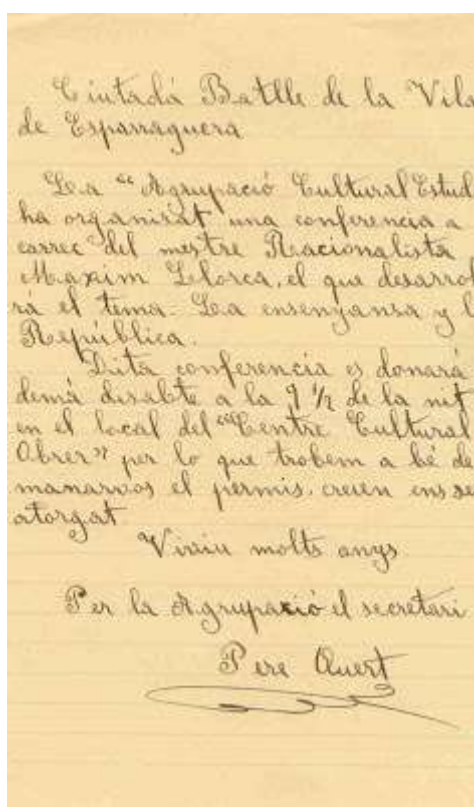 Ciutadá Batlle de la Vila
de Esparraguera
La "Agrupació Cultural Estud
ha organisat una conferencia a
carrec del mestre Racionalista
Maxim Llorca, el que desarrol
rá el tema - La ensenyansa y l
República.
Dita conferencia es donará
demá disabte a la 9 ½ de la nit
en el local del "Centre Cultural
Obrer" per lo que trobem a bé de
manarvos el permis, creien ens se
atorgat
Viviu molts anys
Per la Agrupació el secretari
Pere Quert